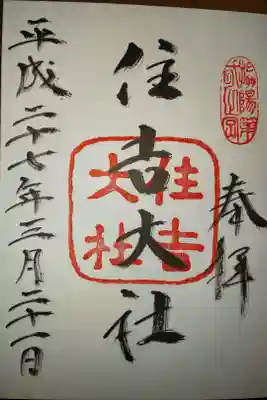 奉拝
住吉大社
住吉大社
平成二十七年三月二十一日